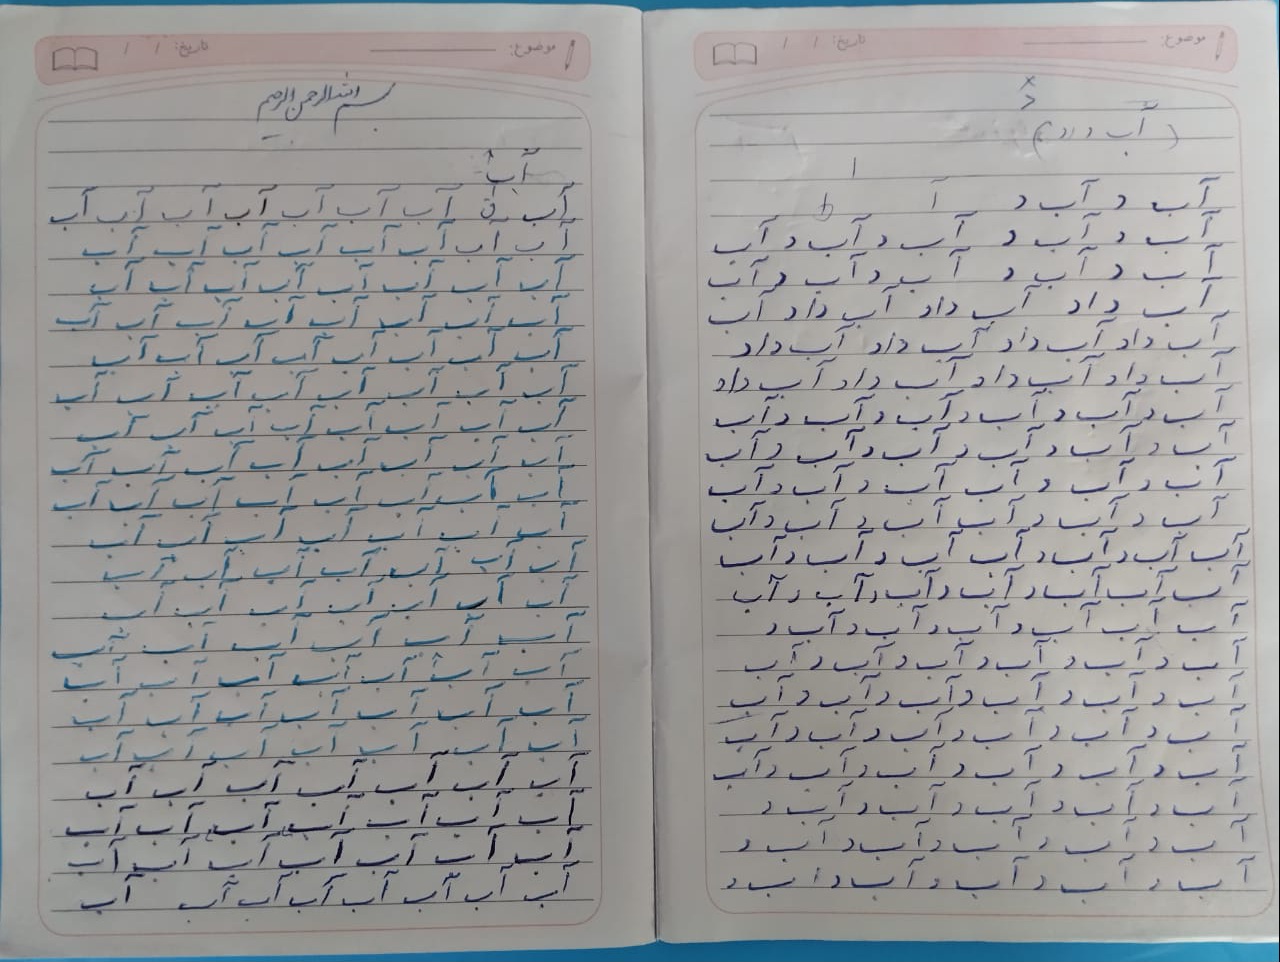 موضوع: تاریخ: / /
د
آب د آب د آ
آب د آب د آب د آب د آب
آب د آب د آب د آب د آب
آب داد آب داد آب داد آب
آب داد آب داد آب داد آب داد
آب داد آب داد آب داد آب داد
آب د آب د آب د آب د آب د آب
آب د آب د آب د آب د آب د آب
آب د آب د آب آب د آب د آب
آب د آب د آب آب د آب د آب
آب آب د آب د آب آب د آب د آب
آب آب آب د آب د آب د آب د آب
آب آب آب د آب د آب د آب د
آب د آب د آب د آب د آب د آب
آب د آب د آب د آب د آب د آب
آب د آب د آب د آب د آب د آب
آب د آب د آب د آب د آب د آب
آب د آب د آب د آب د آب د
آب د آب د آب د آب د آب د
آب د آب د آب د آب د آب د
موضوع: تاریخ: / /
بسم الله الرحمن الرحیم
آب
آب آب آب آب آب آب آب آب
آب آب آب آب آب آب آب آب
آب آب آب آب آب آب آب آب
آب آب آب آب آب آب آب آب
آب آب آب آب آب آب آب آب
آب آب آب آب آب آب آب آب
آب آب آب آب آب آب آب آب
آب آب آب آب آب آب آب آب
آب آب آب آب آب آب آب آب
آب آب آب آب آب آب آب
آب آب آب آب آب آب آب
آب آب آب آب آب آب آب
آب آب آب آب آب آب
آب آب آب آب آب آب آب
آب آب آب آب آب آب آب
آب آب آب آب آب آب آب
آب آب آب آب آب آب آب
آب آب آب آب آب آب آب
آب آب آب آب آب آب آب
آب آب آب آب آب آب آب آب